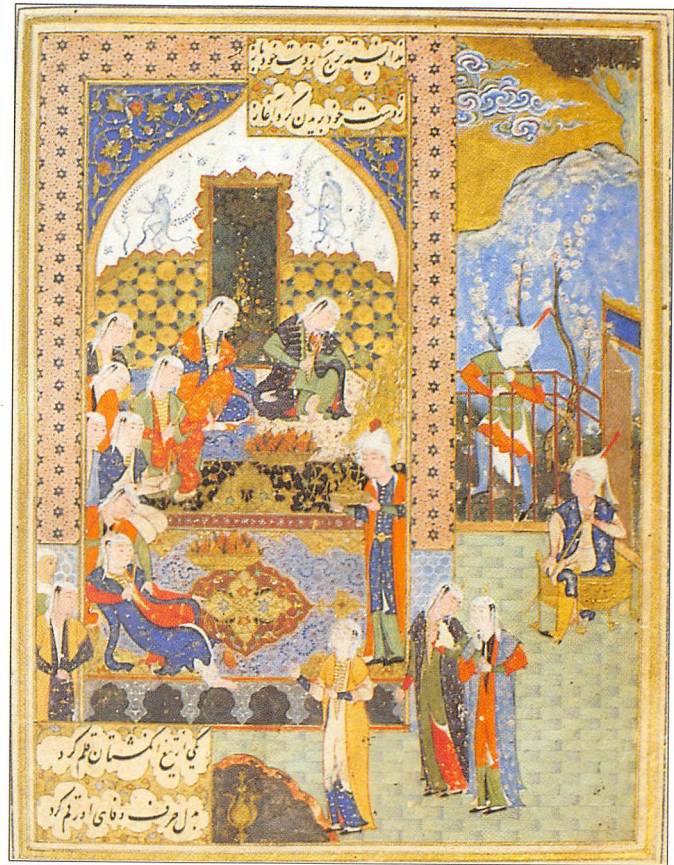 ندانسته ترنج از دست خود باز
ز دست خود بریدن کرد آغاز
یکی از تیغ انگشتان قلم کرد
بدل حرف وفای او رقم کرد